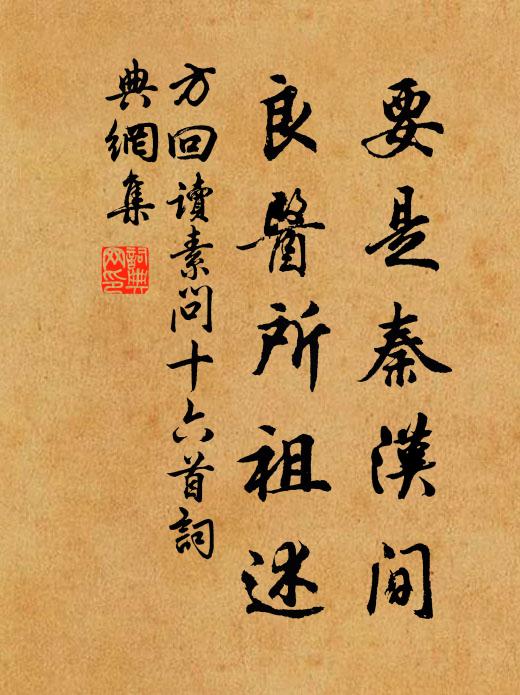 要是秦漢間
良醫所祖述
方回讀素問十六首詞
典網集
詞典網印